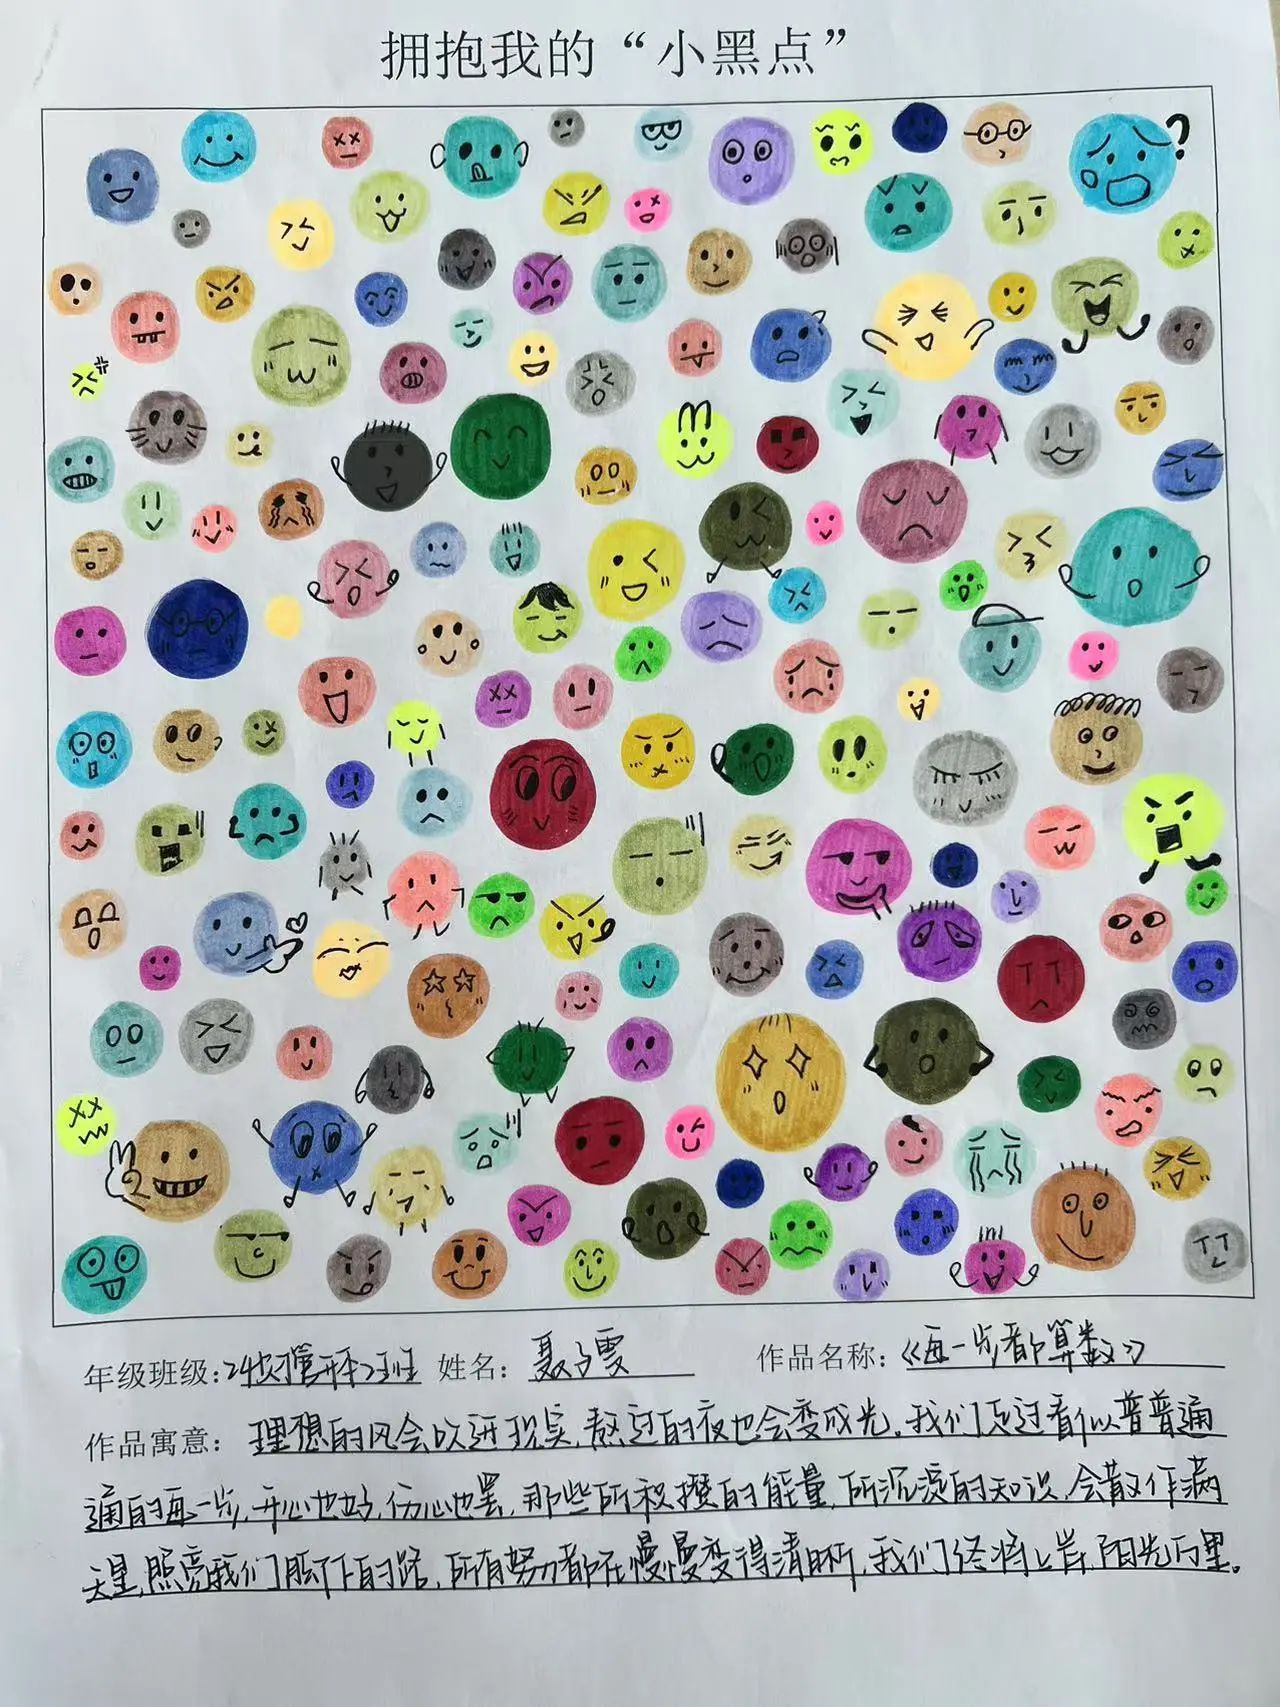 拥抱我的“小黑点”
年级班级: 24 班 姓名: 聂 雯 作品名称:《每一步都算数》
作品寓意: 理想的风会吹进现实,熬过的夜也会变成光。我们走过看似普普通
通的每一步,开心也好,伤心也罢,那些所积攒的能量,所沉淀的知识,会散作满
天星,照亮我们脚下的路,所有努力都在慢慢变得清晰,我们终将上岸,阳光万里。